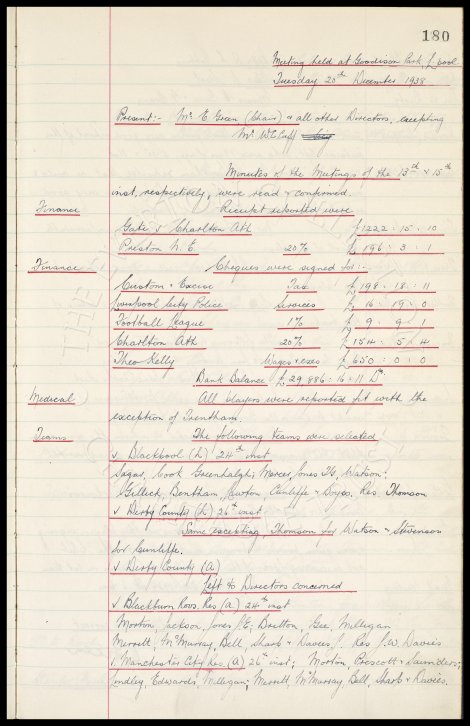 180
Meeting held at Goodison Park, L'pool
Tuesday 20th December 1938
Present:- Mr. E. Green (Chair) & all other Directors, excepting
Mr W.C. Cuff
Minutes of the Meetings of the 13th & 15th
inst, respectively, were read & confirmed.
Finance
Receipts reported were
Gate v Charlton Ath £1222 : 15 : 10
Preston N. E. 20% £196 : 3 : 1
Finance
Cheques were signed for :-
Custom & Excise Tax £198 : 18 : 11
Liverpool City Police Services £16 : 19 : 0
Football League 1% £9 : 9 : 1
Charlton Ath 20% £154 : 5 : 4
Theo Kelly Wages & exes £650 : 0 : 0
Bank Balance £29,886 : 16 : 11 Dr.
Medical
All players were reported fit with the
exception of Trentham.
Teams
The following teams were selected
v Blackpool (h) 24th inst
Sagar, Cook Greenhalgh; Mercer, Jones TG, Watson:
Gillick, Bentham, Lawton, Cunliffe & Boyes, Res. Thomson
v Derby County (h) 26th inst
Same excepting Thomson for Watson & Stevenson
for Cunliffe.
v Derby County (a)
Left to Directors concerned
v Blackburn Rovs. Res (a) 24th inst
Morton, Jackson, Jones J.E; Britton, Gee, Milligan:
Merritt, McMurray, Bell, Sharp & Davies J. Res J.W. Davies
v. Manchester City Res (a) 26th inst; Morton, Prescott & Saunders;
Lindley, Edwards, Milligan; Merritt McMurray, Bell, Sharp & Davies.